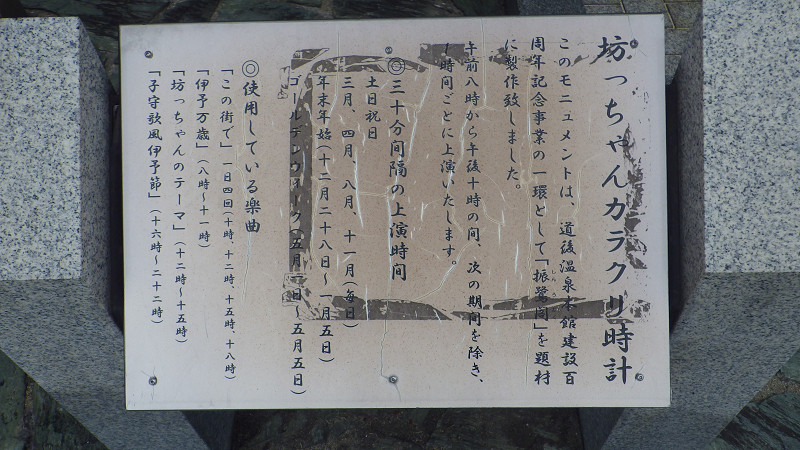 坊っちゃんカラクリ時計
このモニュメントは、道後温泉本館建設百
周年記念事業の一環として「振鷺閣」を題材
しんろかく
に製作致しました。
午前八時から午後十時の間、次の期間を除き、
一時間ごとに上演いたします。
◎三十分間隔の上演時間
土日祝日
三月、四月、八月、十一月(毎日)
年末年始(十二月二十八日〜一月五日)
ゴールデンウィーク(五月一日〜五月五日)
◎使用している楽曲
「この街で」一日四回(十時、十二時、十五時、十八時)
「伊予万歳」(八時〜十一時)
「坊っちゃんのテーマ」(十二時〜十五時)
「子守歌風伊予節」(十六時〜二十二時)